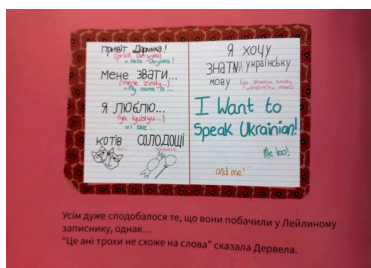 привіт Даринка!
= Hello Darynka!
мене звати...
(mene zvaty...)
= My name is...
я люблю...
(ya lyublyu...)
= I like
котів
солодощі
Я хочу
знати українську
мову
I Want to
Speak Ukrainian!
Me too!
and me!
Усім дуже сподобалося те, що вони побачили у Лейлиному
записнику, однак...
"Це ані трохи не схоже на слова" сказала Дервела.